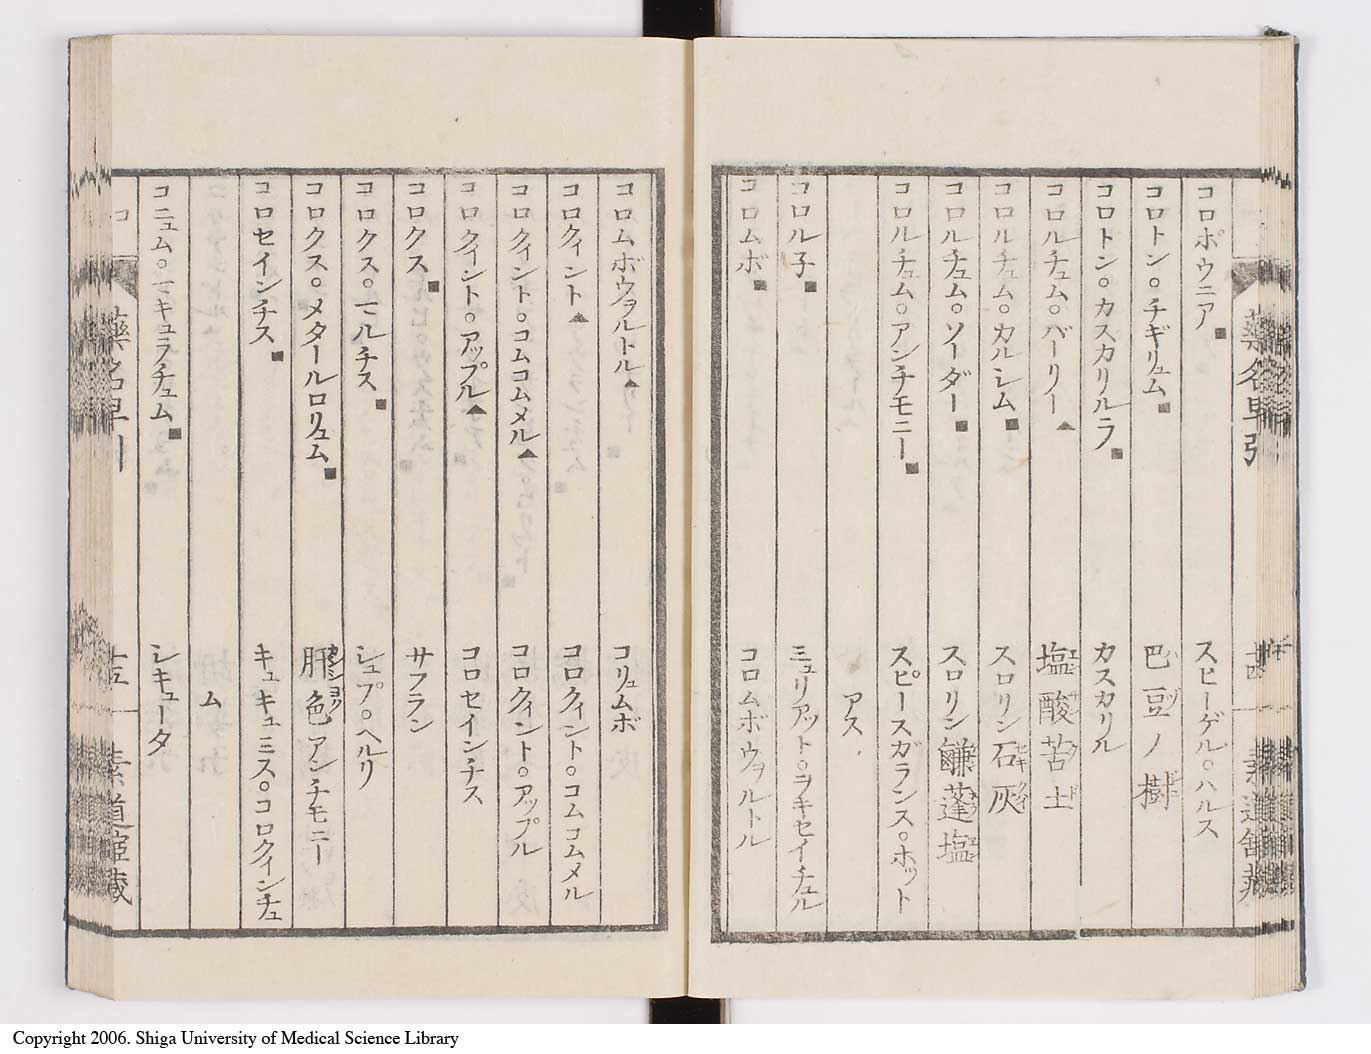 コロポウニア■ スピーゲル。ハルス
コロトン。チギリュム■ 巴豆ノ樹
コロトン。カスカリルラ■ カスカリル
コロルチュム。バーリー▲ 塩酸苦土
コロルチュム。カルシム■ スロリン石灰
コロルチュム。ソーダー■ スロリン鹻蓬塩
コロルチュム。アンチモニー■ スピースガランス。ホット
アス
コロル子■ ミュリアット。ヲキセイチュル
コロムボ■ コロムボウヲルトル
コロムボウヲルトル▲ コリュムボ
コロクィント▲ コロクィント。コムコムメル
コロクィント。コムコムメル▲ コロクィント。アップル
コロクィント。アップル▲ コロセインチス
コロクス■ サフラン
コロクス。マルチス■ シュプ。ヘルリ
コロクス。メタールロリュム■ 肝色アンチモニー
コロセインチス■ キュキュミス。コロクィンチュ
ム
コニュム。マキュラチュム■ シキュータ
Copyright 2006. Shiga University of Medical Science Library